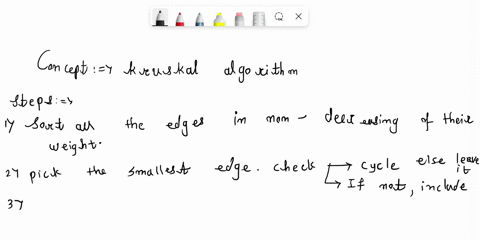 Concept :=> kruskal algorithm
steps :=>
1> Sort all the edges in non - decreasing of their
weight.
2> pick the smallest edge. check → cycle else leave
it
→ If not, include
3>